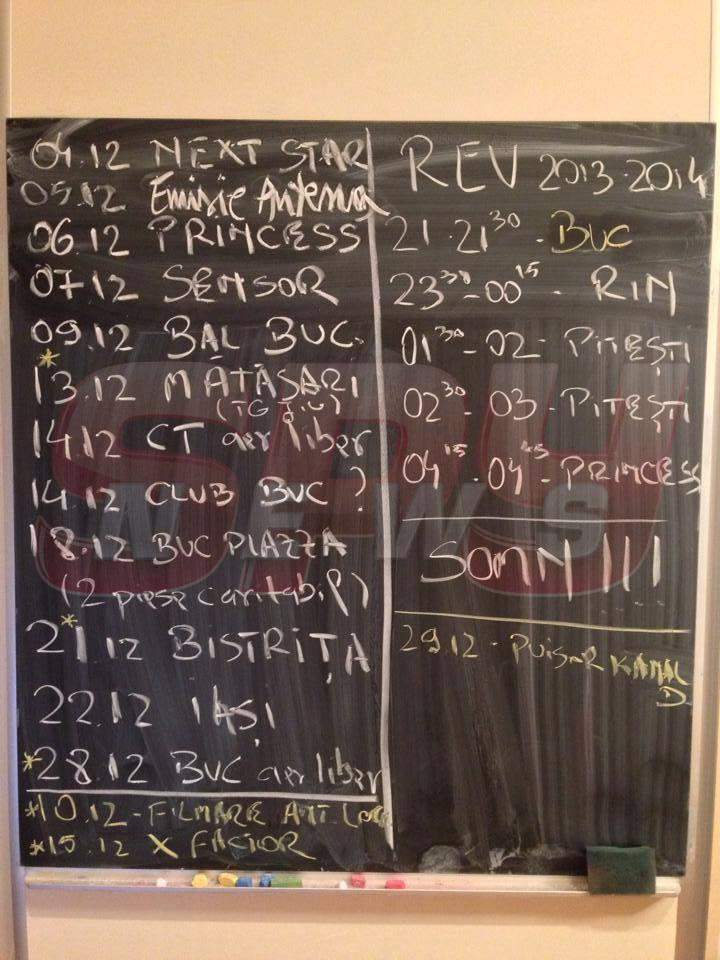 04.12 NEXT STAR
05.12 Emisie Antena
06.12 PRINCESS
07.12 SENSOR
09.12 BAL BUC.
*
13.12 MĂTĂSARI
(TG Jiu)
14.12 CT aer liber
14.12 CLUB BUC ?
18.12 BUC PIAZZA
(2 piese caritabil)
*
21.12 BISTRIȚA
22.12 IAȘI
*28.12 BUC aer liber
*10.12 - FILMARE ANT.
*15.12 X FACTOR
REV 2013-2014
21-21³⁰ - BUC
23³⁰-00¹⁵ - RIN
01³⁰-02- PITEȘTI
02³⁰-03-PITEȘTI
04¹⁵-04⁴⁵-PRINCESS
SOMN !!!
29.12 - KANAL
D
SPY
NEWS